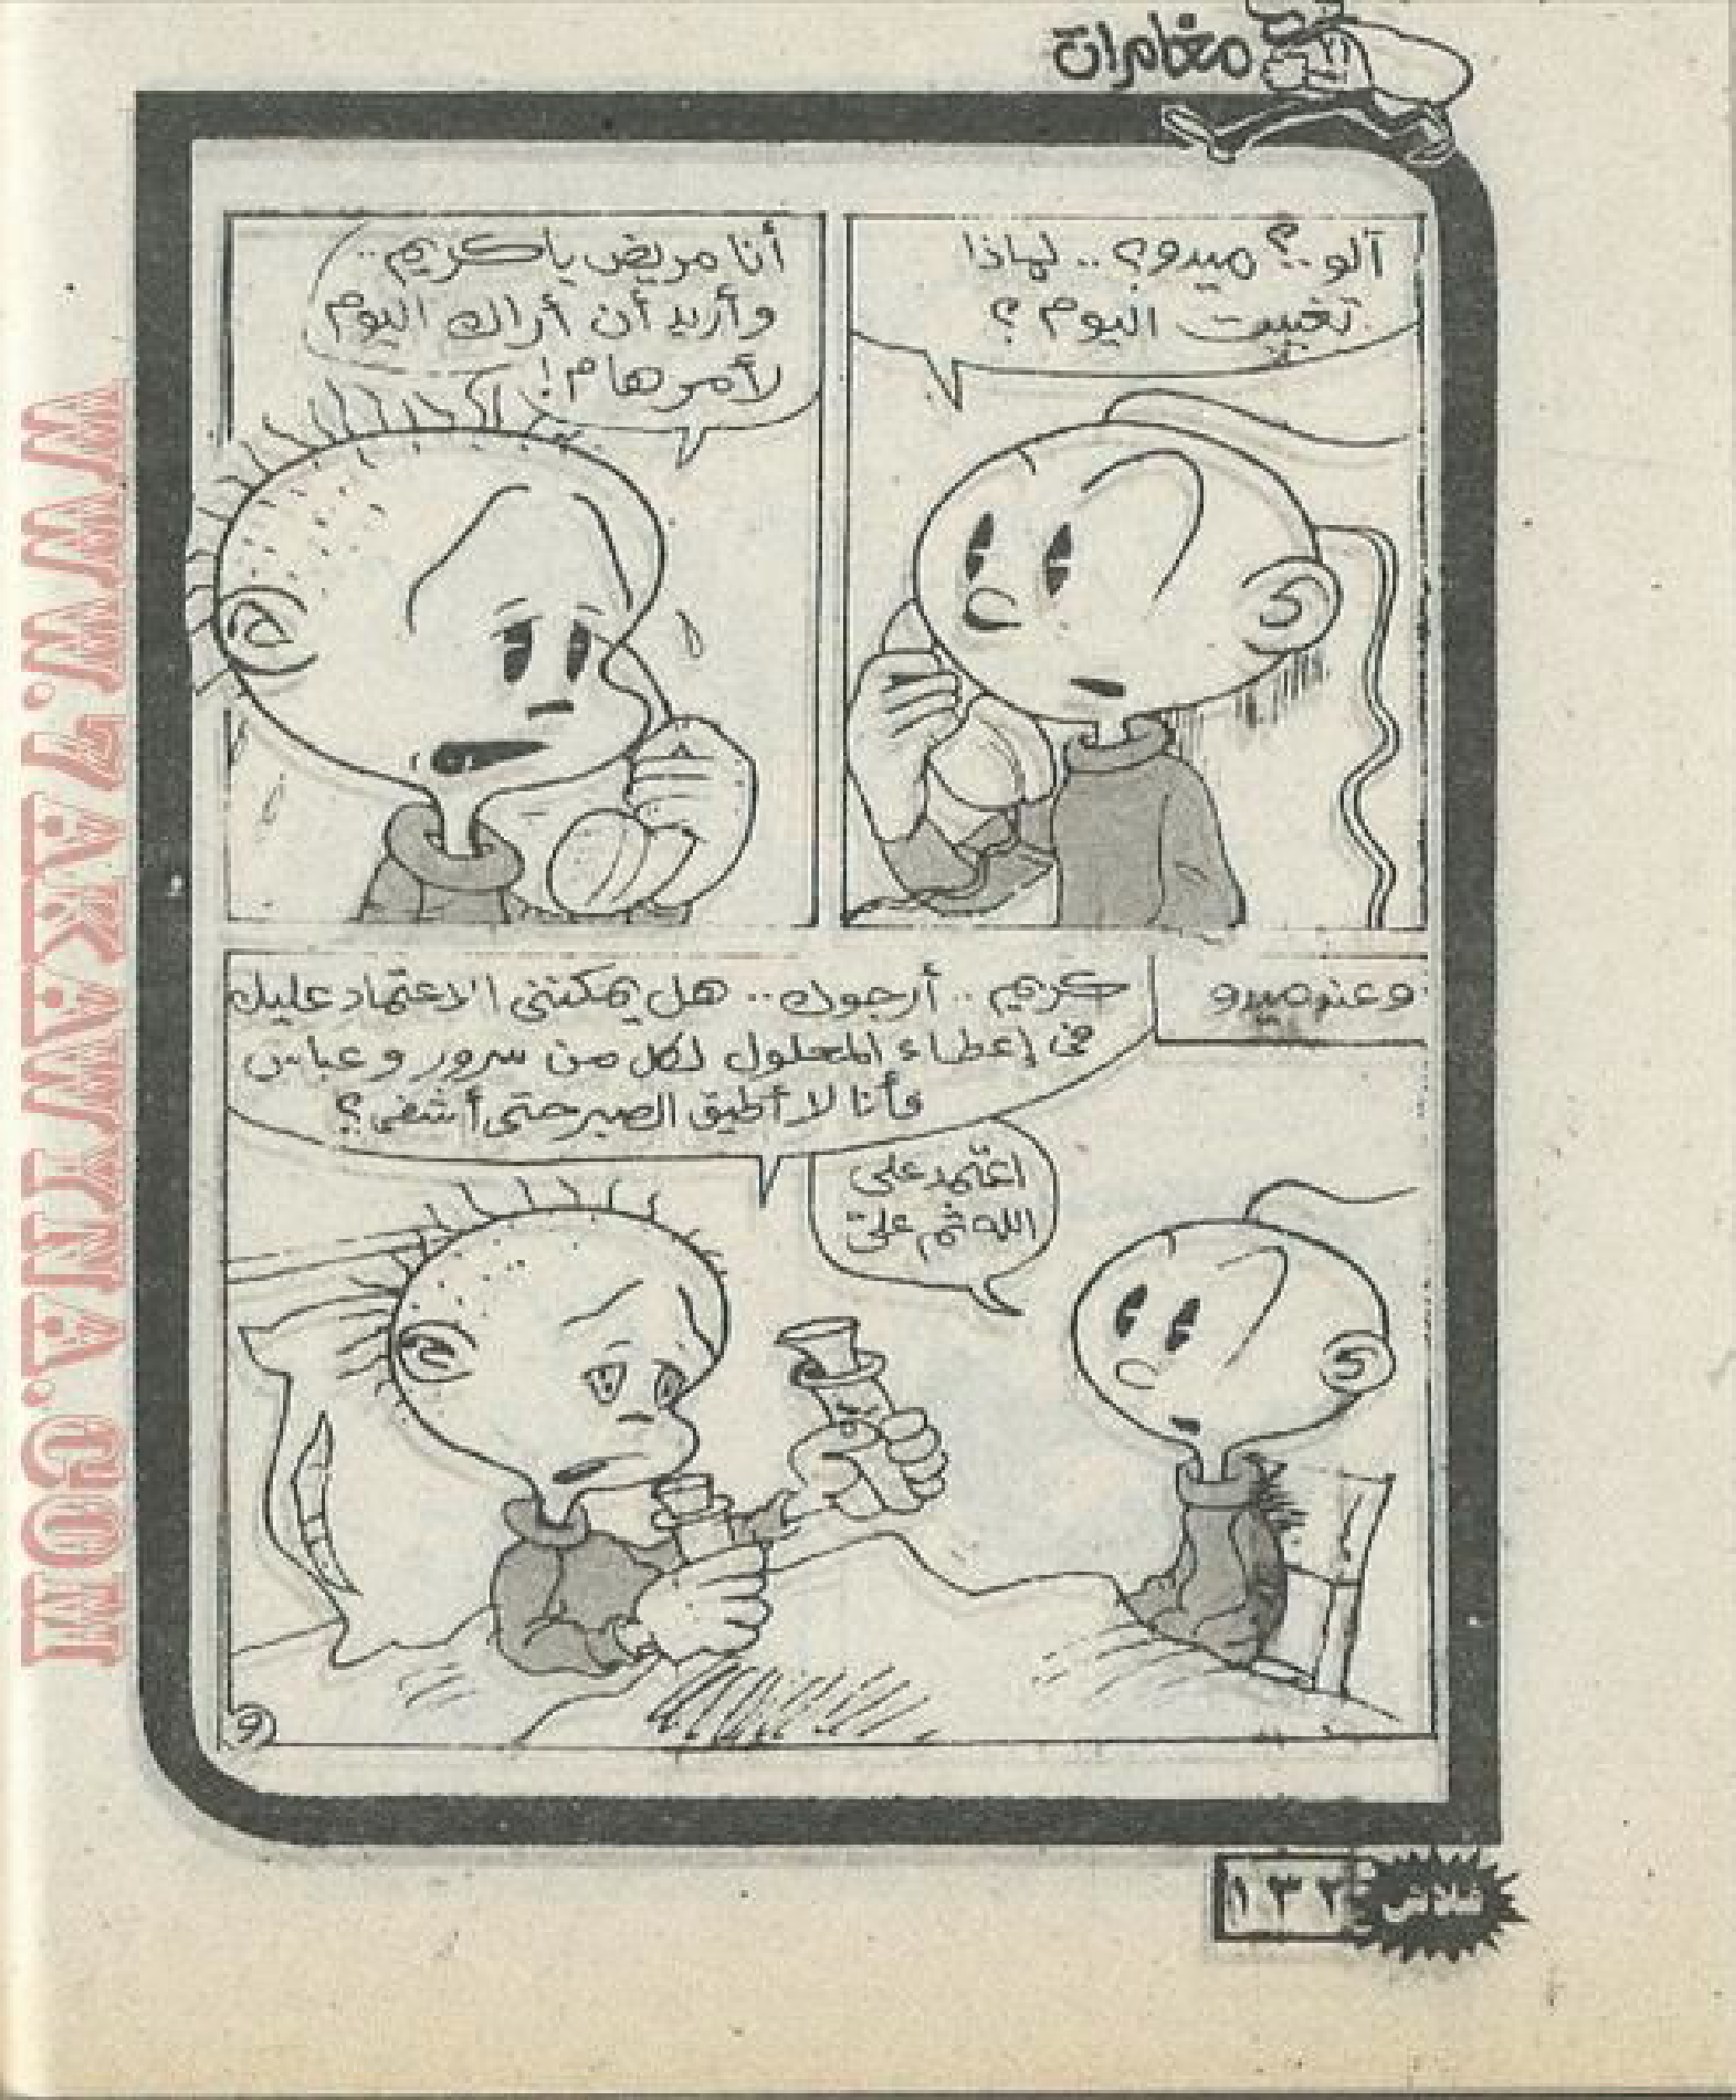 مغامرات
آلو..؟ ميدو؟.. لماذا
تغيبت اليوم؟
أنا مريض يا كريم..
وأريد أن أراك اليوم
لأمر هام!
وعند ميدو
كريم.. أرجوك.. هل يمكننى الاعتماد عليك
فى إعطاء المحلول لكل من سرور وعباس
فأنا لا أطيق الصبر حتى أشفى؟
اعتمد على
الله ثم علىّ
٩
فلاش
١٣٢
WWW.7AKAWINA.COM